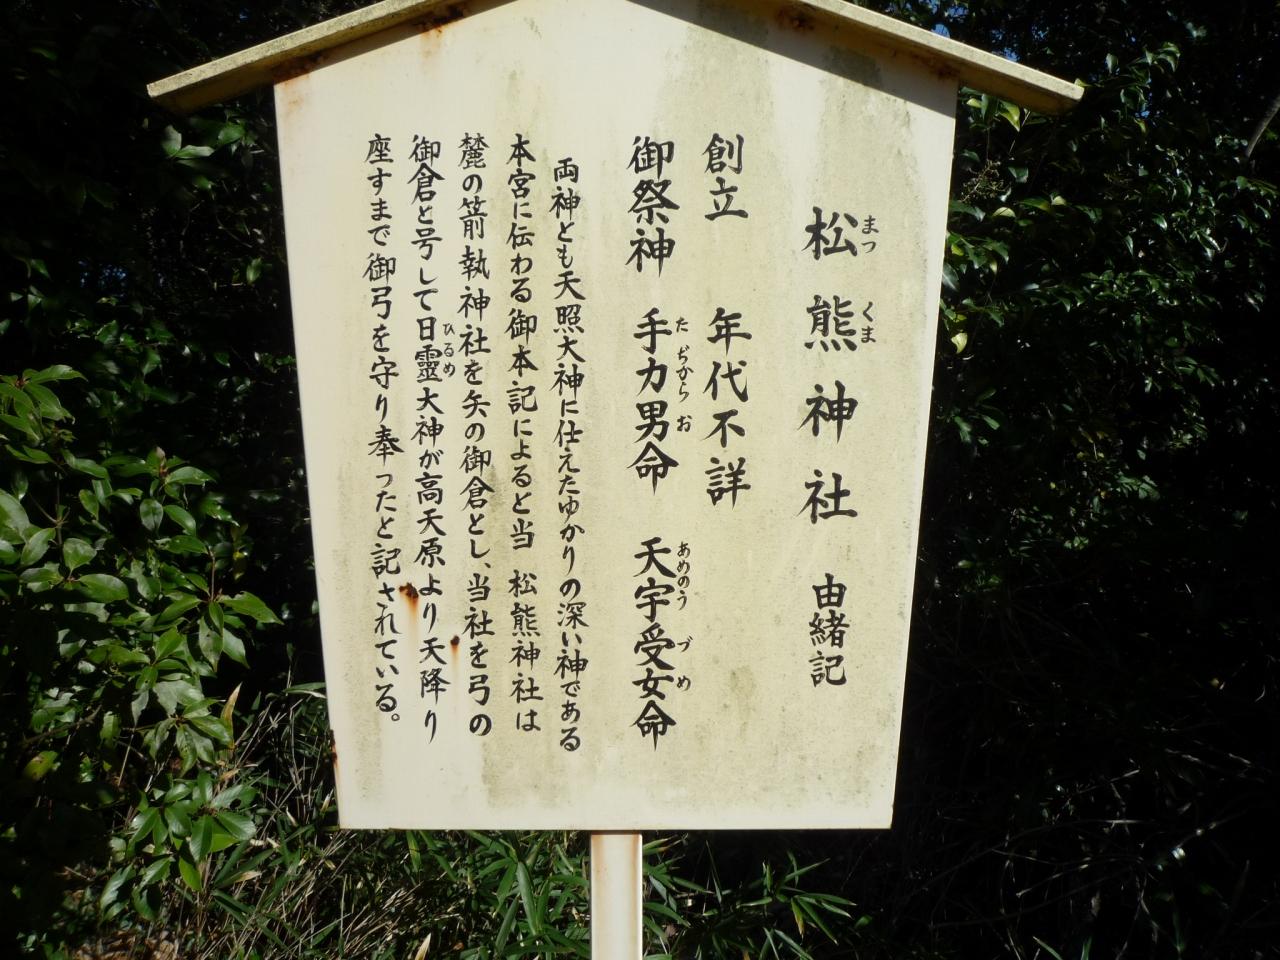 松熊神社 由緒記
まつ くま
創立 年代不詳
御祭神 手力男命 天宇受女命
たぢからお あめのうづめ
両神とも天照大神に仕えたゆかりの深い神である
本宮に伝わる御本記によると当 松熊神社は
麓の箭執神社を矢の御倉とし、当社を弓の
御倉と号して日靈大神が高天原より天降り
ひるめ
座すまで御弓を守り奉ったと記されている。